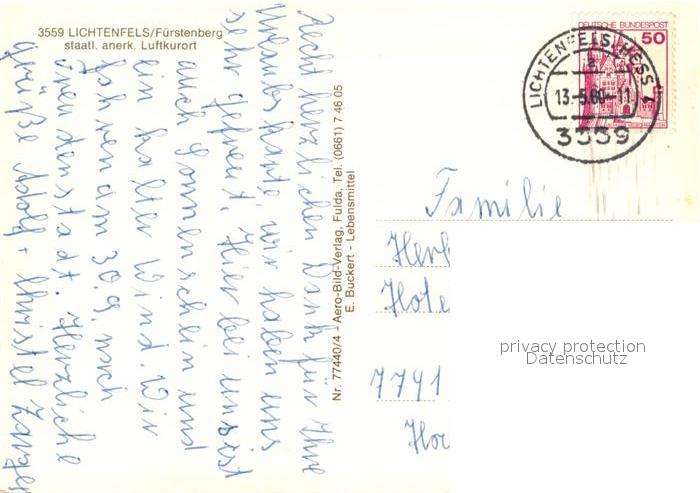 3559 LICHTENFELS/Fürstenberg
staatl. anerk. Luftkurort
Recht herzlichen Dank für Ihre
Urlaubskarte, wir haben uns
sehr gefreut. Hier bei uns ist
auch Sonnenschein und
ein kalter Wind. Wir
fahren am 30.9. nach
Herzliche
grüße Adolf + Christel
Nr. 77440/4 - Aero-Bild-Verlag, Fulda, Tel. (0661) 7 46 05
E. Buckert - Lebensmittel
DEUTSCHE BUNDESPOST
50
LICHTENFELS, HESS 1
a
13.-5.80-11
3559
Familie
Herb
Hote
7741
Hor
privacy protection
Datenschutz